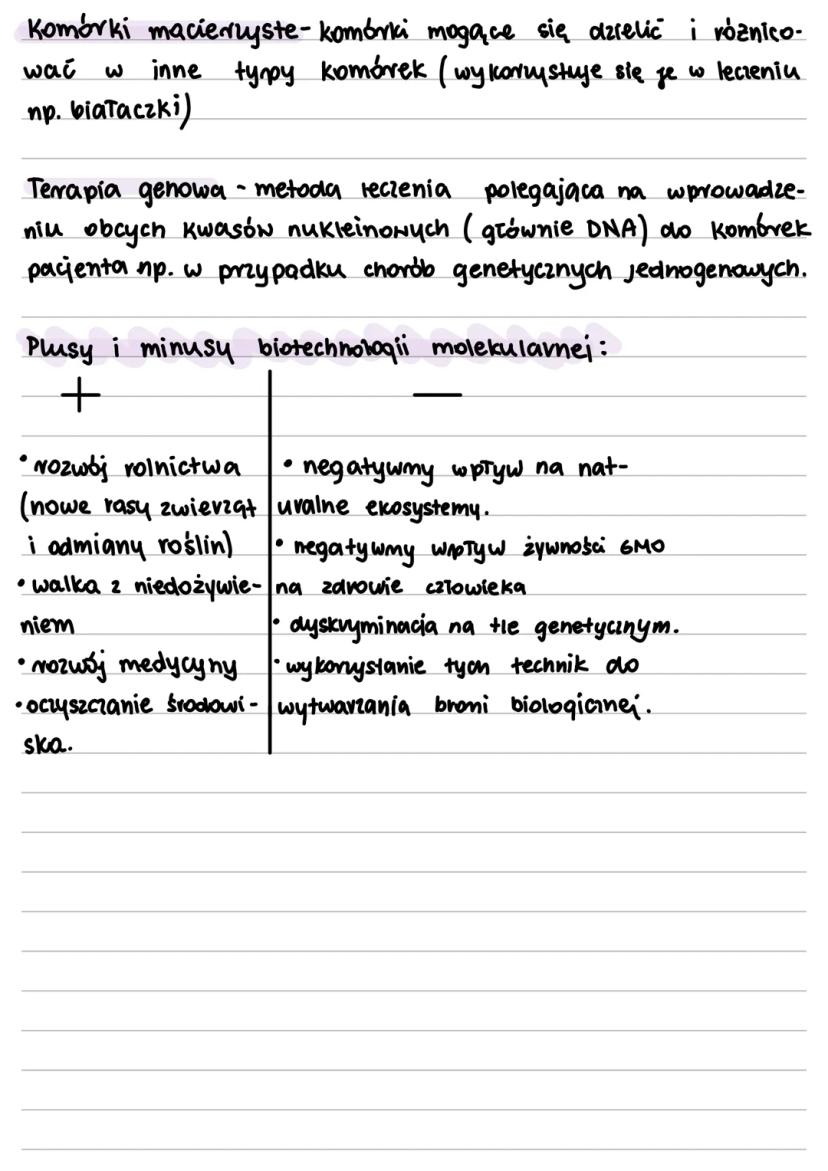 Komórki macierzyste- komórki mogące się dzielić i różnico-
wać w inne typy komórek (wykorzystuje się je w leczeniu
np. białaczki)
Terapia genowa - metoda leczenia polegająca na wprowadze-
niu obcych kwasów nukleinowych (głównie DNA) do komórek
pacjenta np. w przypadku chorób genetycznych jednogenowych.
Plusy i minusy biotechnologii molekularnej:
+
• rozwój rolnictwa
(nowe rasy zwierząt
i odmiany roślin)
• walka z niedożywie-
niem
• rozwój medycyny
• oczyszczanie środowi-
ska.
—
• negatywny wpływ na nat-
uralne ekosystemy.
• negatywny wpływ żywności GMO
na zdrowie człowieka
• dyskryminacja na tle genetycznym.
• wykorzystanie tych technik do
wytwarzania broni biologicznej.